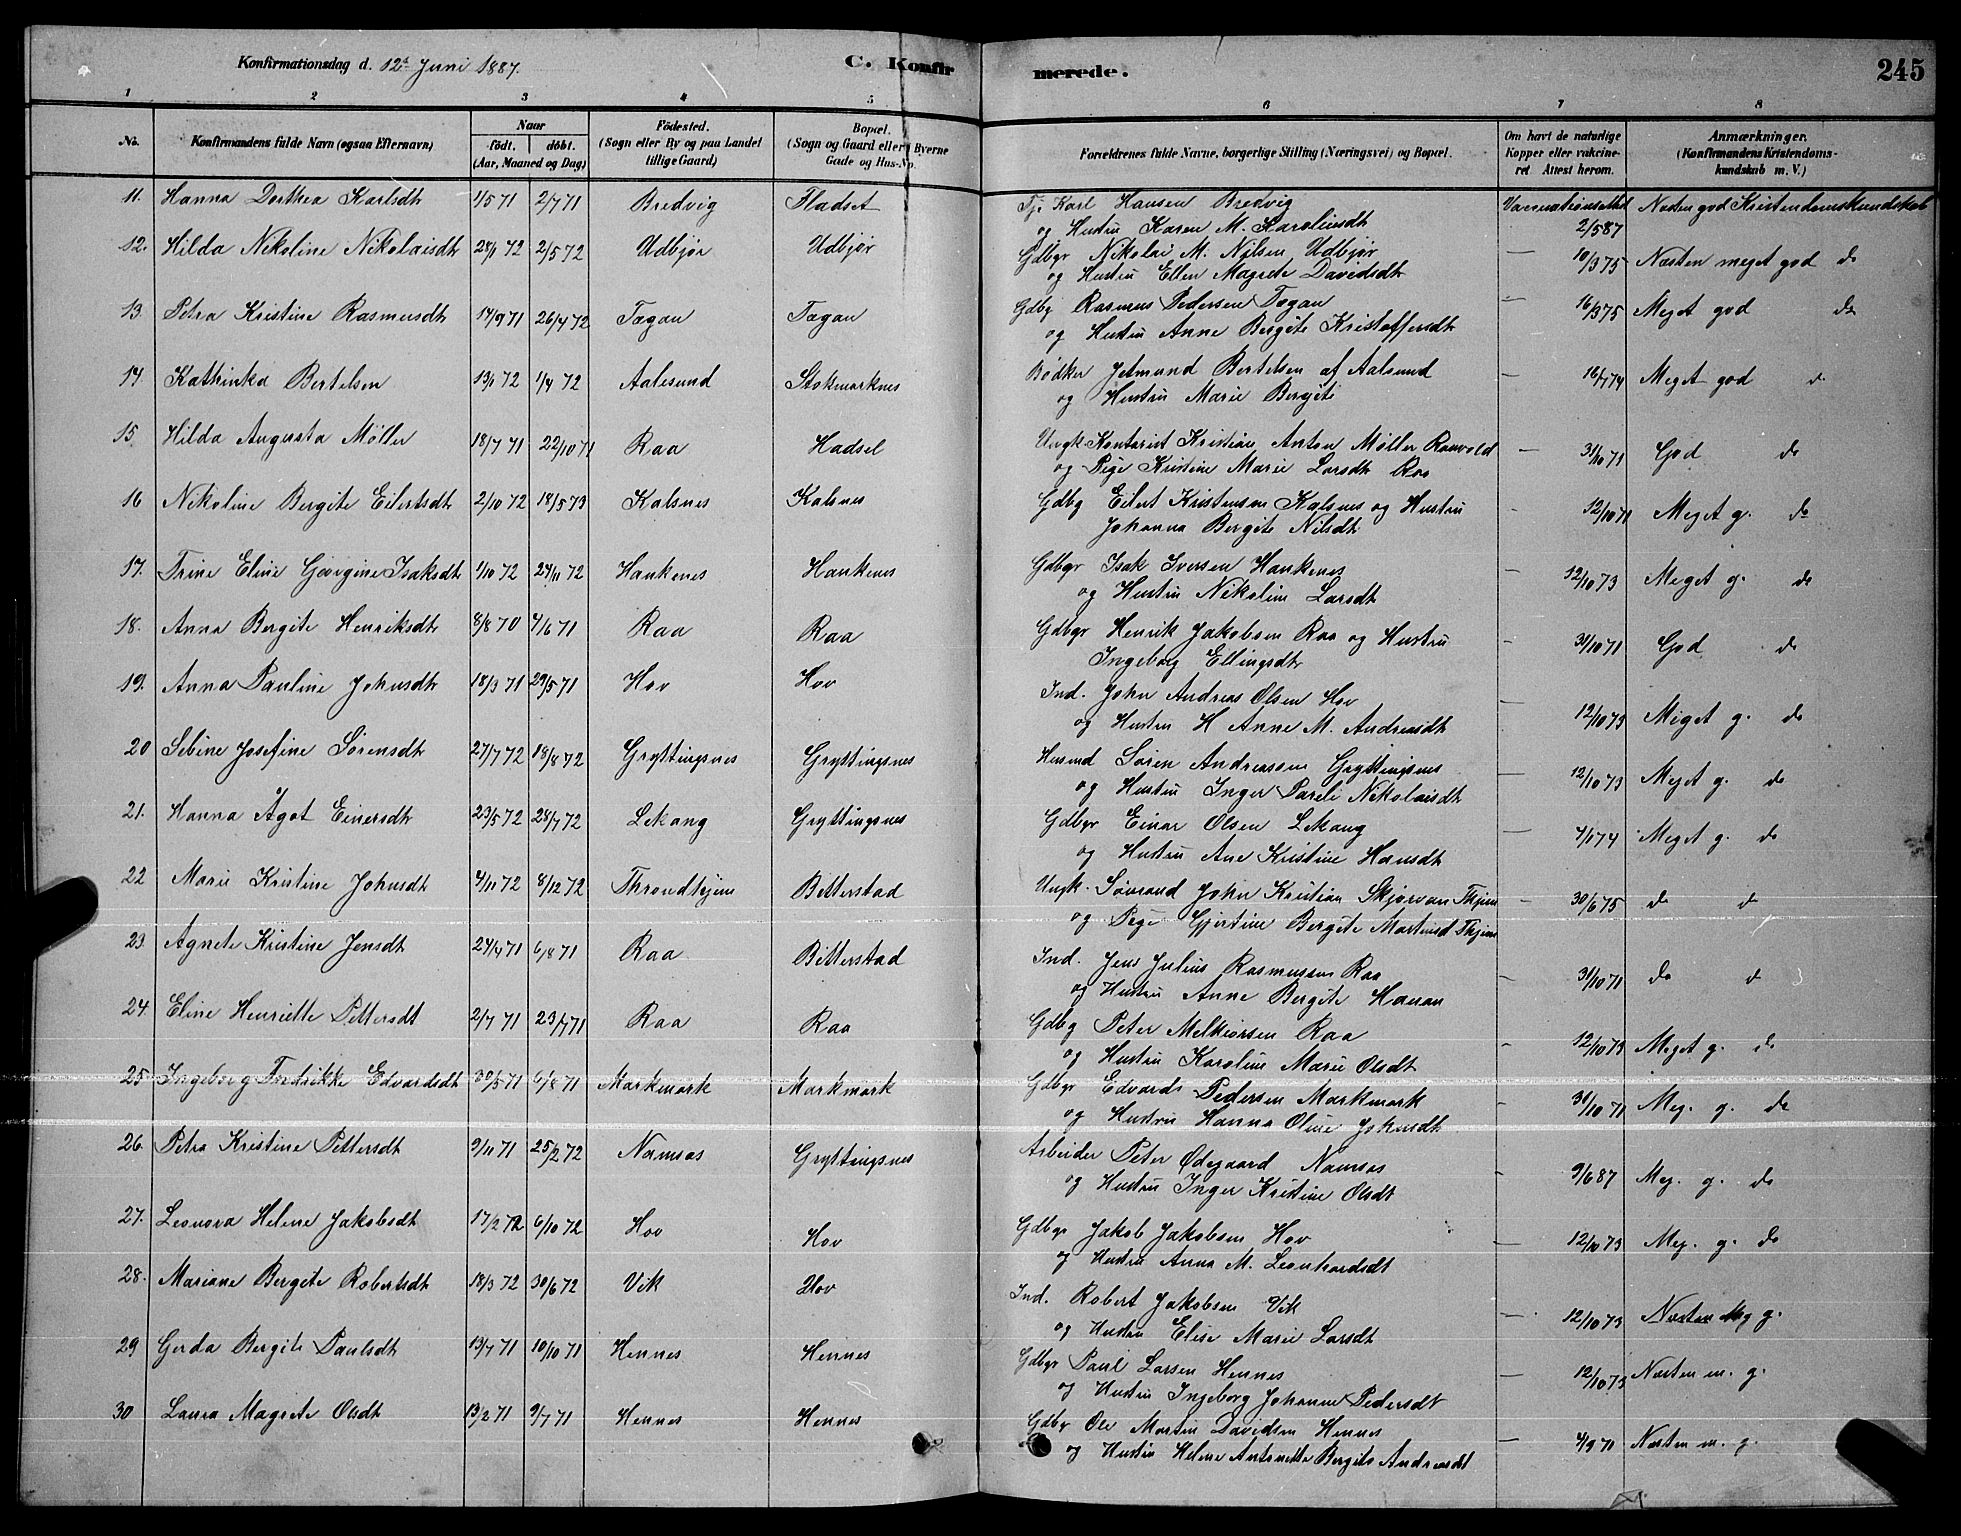 Konfirmationsdag d. 12te Juni 1887.
C. Konfirmerede.
245
1 2 3 4 5 6 7 8
No.
Konfirmandens fulde Navn (ogsaa Efternavn)
Naar
födt. döbt.
(Aar, Maaned og Dag)
Födested.
(Sogn eller By og paa Landet
tillige Gaard)
Bopæl.
(Sogn og Gaard eller i Byerne
Gade og Hus-No.
Forældrenes fulde Navne, borgerlige Stilling (Næringsvei) og Bopæl.
Om havt de naturlige
Kopper eller vakcine-
ret Attest herom.
Anmærkninger.
(Konfirmandens Kristendoms-
kundskab m. V.)
11. Hanna Dorthea Karlsdtr 1/5 71 2/7 71 Bredvig Fladset Tje Karl Hansen Bredvig
og Hustru Karen M. Karolinsdt 2/5 87 Næsten god Kristendomskundskab
12. Hilda Nikoline Nikolaisdtr 28/1 72 2/5 72 Udbjør Udbjør Gdbgr Nikolai M. Nilsen Udbjør
og Hustru Ellen Magrete Davidsdtr — 10/3 75 Næsten meget god do
13. Petra Kristine Rasmusdtr 14/9 71 26/4 72 Tøgan Tøgan Gdbg Rasmus Pedersen Tøgan
og Hustru Anne Bergite Kristoffersdtr — 16/3 75 Meget god do
14. Kathinka Bertelsen 13/1 72 1/4 72 Aalesund Stokmarknes Bödker Jetmund Bertelsen af Aalsund
og Hustru Marie Bergite — 16/7 74 Meget god do
15. Hilda Augusta Møller 18/7 71 22/10 71 Raa Hadsel Ungk Kontorist Kristian Anton Møller
og Pige Kristine Marie Larsdtr Raa — 31/10 71 God do
16 Nikoline Bergite Eilertsdt 2/10 72 18/5 73 Kalsnes Kalsnes Gdbg Eilert Kristensen Kalsnes og Hustru
Johanna Bergite Nilsdt — 12/10 71 Meget g. do
17. Trine Eline Georgine Isaksdt 1/10 72 24/11 72 Haukenes Haukenes Gdbgr Isak Iversen Haukenes
og Hustru Nikoline Larsdt 12/10 73 Meget g. do
18. Anna Bergite Henriksdtr 8/8 70 4/6 71 Raa Raa Gdbgr Henrik Jakobsen Raa og Hustru
Ingeborg Ellingsdtr — 31/10 71 God do
19. Anna Pauline Johnsdtr 18/3 71 29/5 71 Hov Hov Ind. John Andreas Olsen Hov
og Hustru H Anne M. Andreasdt — 12/10 73 Meget g. do
20 Sebine Josefine Sørensdt 27/7 72 18/8 72 Gryttingsnes Gryttingsnes Husmd Søren Andreassen Gryttingsnes
og Hustru Inger Pareli Nikolaisdt — 12/10 73 Meget g. do
21. Hanna Agot Einersdtr 23/5 72 28/7 72 Lekang Gryttingsnes Gdbgr Einar Olsen Lekang
og Hustru Ane Kristine Hansdt — 4/1 74 Meget g. do
22 Marie Kristine Johnsdt 4/11 72 8/12 72 Throndhjem Bitterstad Ungk. John Kristian Thjem
og Pige Gjertine Bergite Martinsd Thjem — 30/6 75 do do
23. Agnete Kristine Jensdt 24/4 71 6/8 71 Raa Bitterstad Ind. Jens Julius Rasmussen Raa
og Hustru Anne Bergite — 31/10 71 do do
24. Eline Henriette Pettersdt 2/7 71 23/7 71 Raa Raa Gdbg Peter Melkiorsen Raa
og Hustru Karoline Marie Olsdt — 12/10 73 Meget g. do
25 Ingeborg Fredrikke Edvardsdt 30/5 71 6/8 71 Markmark Markmark Gdbgr Edvard Pedersen Markmark
og Hustru Hanna Oline Johnsdt — 31/10 71 Meg. g. do
26. Petra Kristine Pettersdt 3/11 71 25/2 72 Namsos Gryttingsnes Arbeider Peter Ødegaard Namsos
og Hustru Inger Kristine Olsdt — 9/6 87 Meg. g. do
27. Leonora Helene Jakobsdt 17/2 72 6/10 72 Hov Hov Gdbgr Jakob Jakobsen Hov
og Hustru Anna M. Leonhardsdt — 12/10 73 Meg. g. do
28. Mariane Bergite Robertsdt 18/3 72 30/6 72 Vik Hov Ind. Robert Jakobsen Vik
og Hustru Elise Marie Larsdt — 12/10 73 Næsten Meg g.
29 Gerda Bergite Paulsdt 13/7 71 10/10 71 Hennes Hennes Gdbgr Paul Larsen Hennes
og Hustru Ingeborg Johanna Pedersdt — 12/10 73 Næsten m. g.
30 Laura Magrete Olsdt 13/2 71 9/7 71 Hennes Hennes Gdbgr Ole Martin Davidsen Hennes
og Hustru Helene Antonette Bergite Andreasdt — 4/9 71 Næsten m. g.